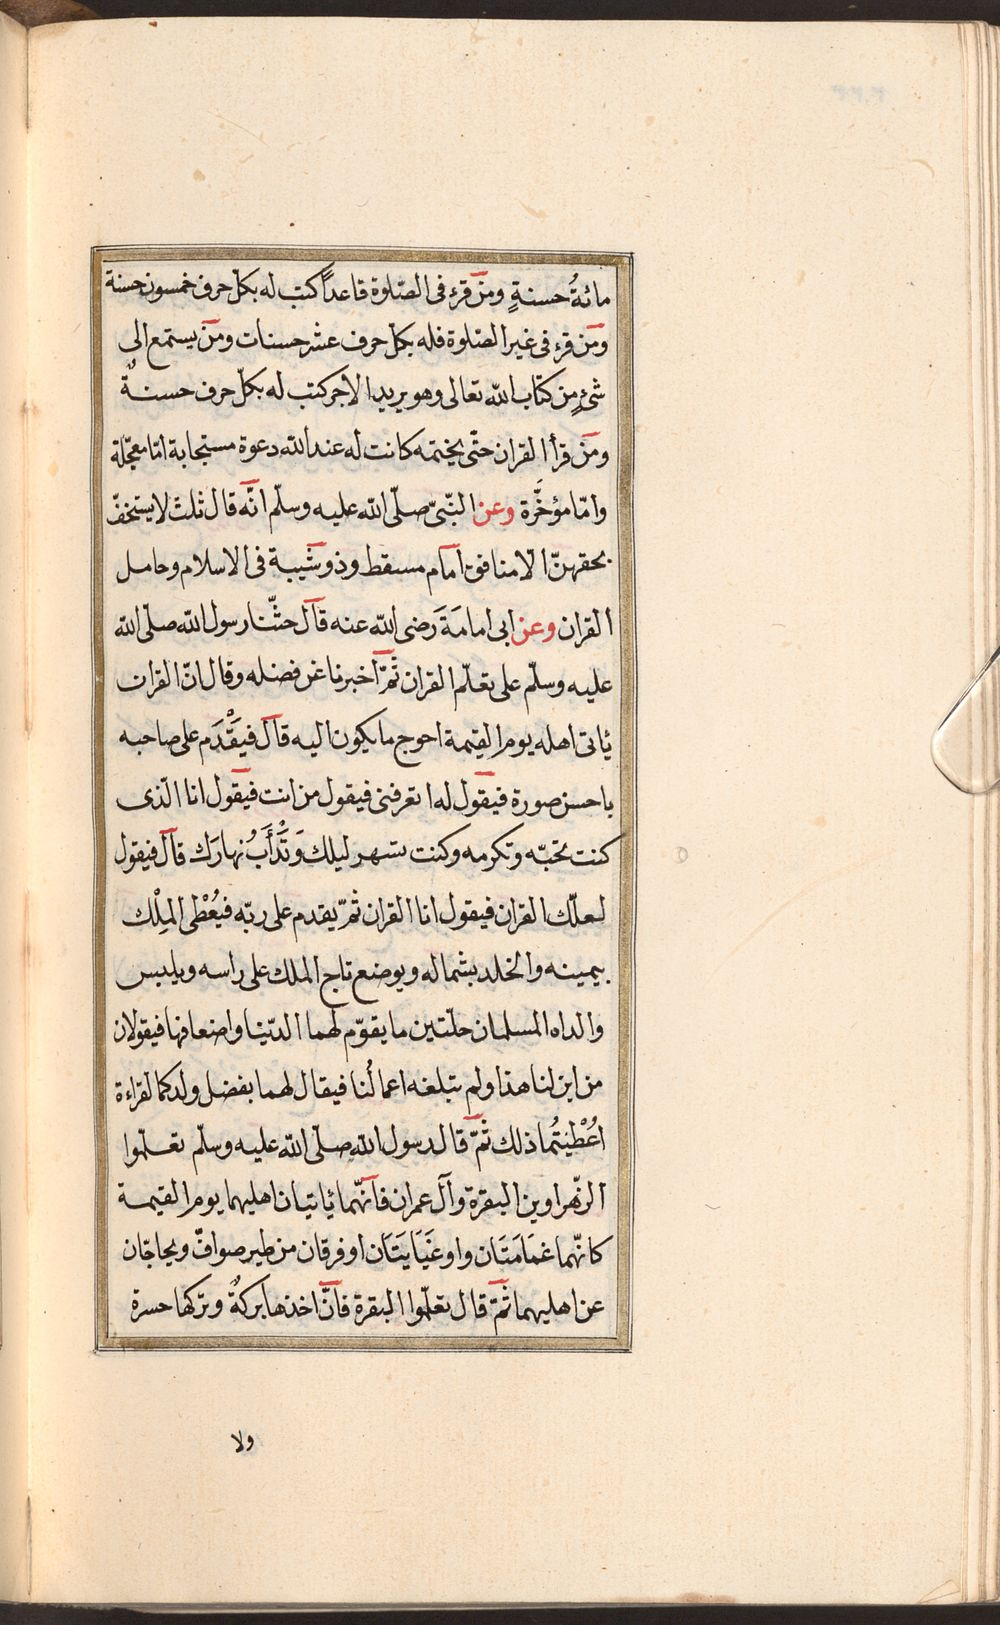 مائةُ حسنةٍ ومن قرء فى الصّلوة قاعداً كتب له بكلّ حرف خمسون حسنة
ومن قرء فى غير الصّلوة فله بكلّ حرف عشر حسنات ومن يستمع الى
شئٍ من كتاب الله تعالى وهو يريد الاجر كتب له بكلّ حرف حسنةٌ
ومن قرأ القران حتّى يختمه كانت له عند الله دعوة مستجابة امّا معجّلة
وامّا مؤخَّرة وعن النّبىّ صلّى الله عليه وسلّم انّه قال ثلث لا يستخفّ
بحقهنّ الّا منافق امام مسقط وذو شيبة فى الاسلام وحامل
القران وعن ابى امامَةَ رَضى الله عنه قال حثّنا رسول الله صلّى الله
عليه وسلّم على تعلّم القران ثمّ اخبرنا عن فضله وقال انّ القران
ياتى اهله يوم القيمة احوج ما يكون اليه قال فيَقْدَم على صاحبه
باحسن صورة فيقول له اتعرفنى فيقول من انت فيقول انا الّذى
كنت تحبّه وتكرمه وكنت تسهر ليلك وَتَدْأَبُ نهارَك قال فيقول
لعلّك القران فيقول انا القران ثمّ يقدم على ربّه فيُعْطى المِلْك
بيمينه والخلد بشماله ويوضع تاج الملك على راسه ويلبس
والداه المسلمان حلّتين ما يقوّم لهما الدّنيا واضعافها فيقولان
من اين لنا هذا ولم تبلغه اعمالُنا فيقال لهما بفضل ولدكما لقراءة
اُعْطيتُما ذلك ثمّ قال رسول الله صلّى الله عليه وسلّم تعلّموا
الزّهراوين البقرة وآل عمران فانّهما ياتيان اهليهما يوم القيمة
كانّهما غمَامَتَان واو غَيَايَتَان او فرقان من طير صوافّ ويحاجّان
عن اهليهما ثمّ قال تعلّموا البقرة فانّ اخذها بركةٌ وتركها حسرة
ولا